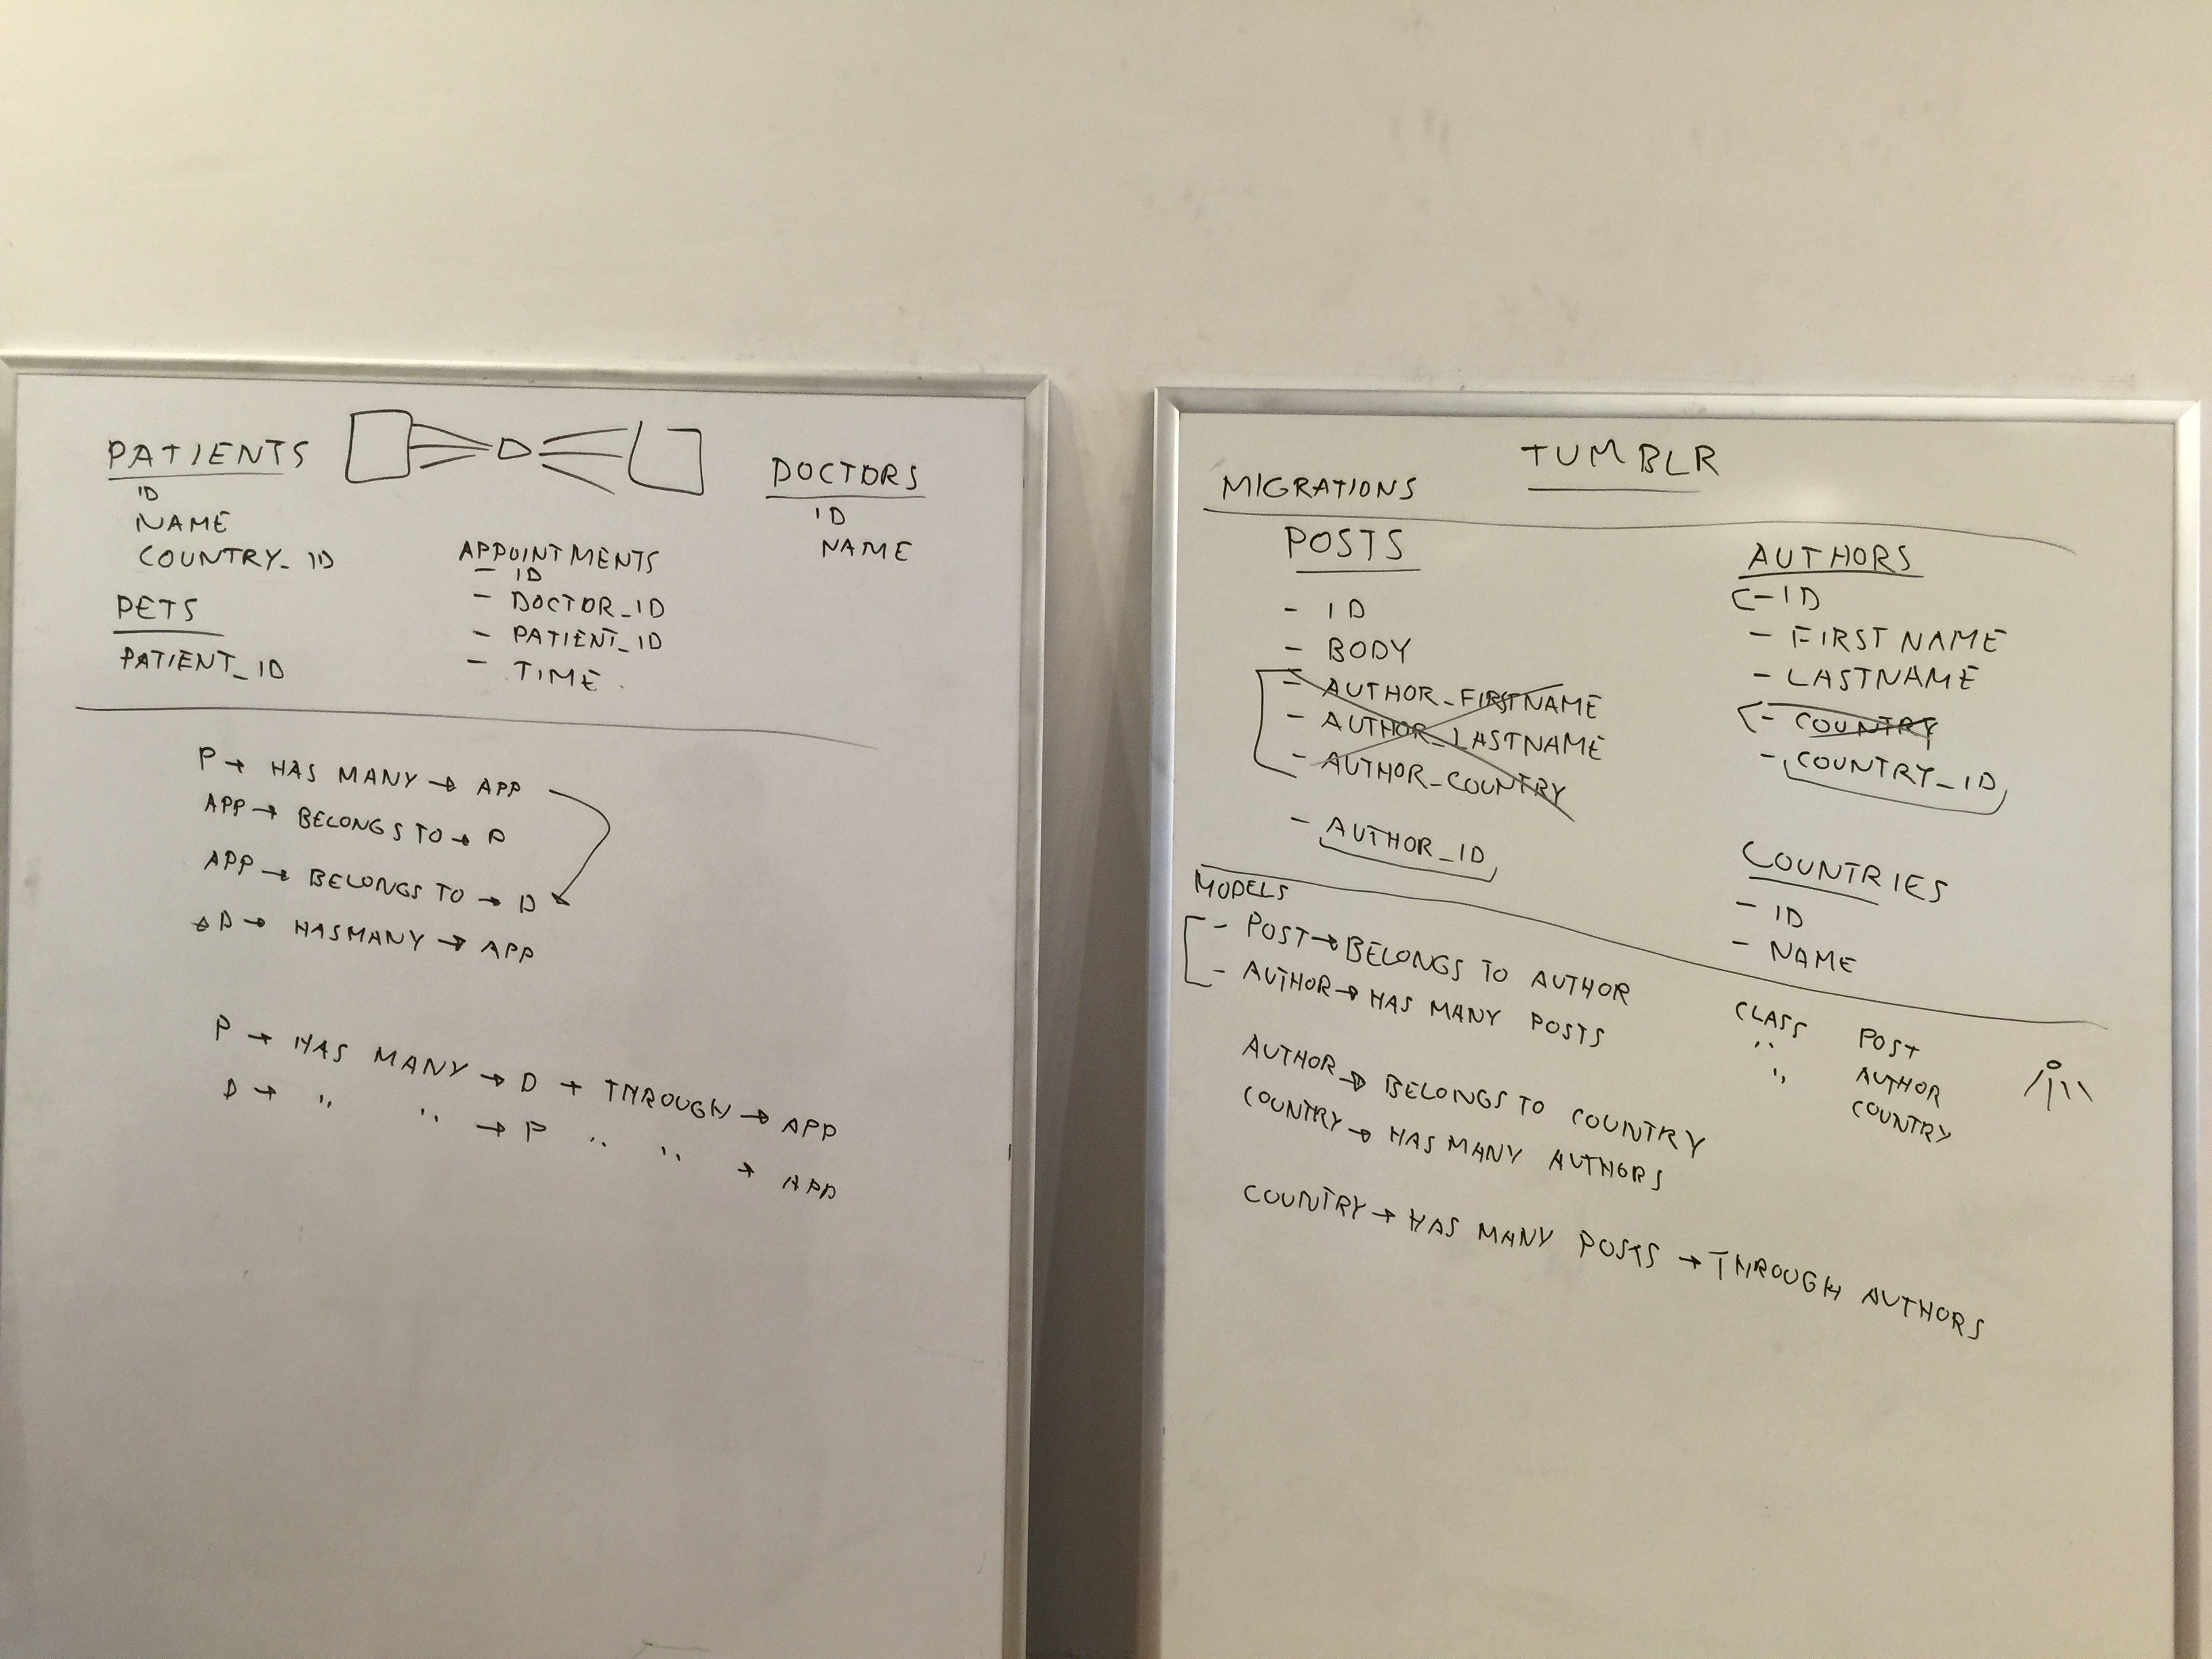 PATIENTS
ID
NAME
COUNTRY_ID
PETS
PATIENT_ID
APPOINTMENTS
- ID
- DOCTOR_ID
- PATIENT_ID
- TIME
DOCTORS
ID
NAME
P → HAS MANY → APP
APP → BELONGS TO → P
APP → BELONGS TO → D
D → HASMANY → APP
P → HAS MANY → D + THROUGH → APP
D → " " → P " " → APP
TUMBLR
MIGRATIONS
POSTS
- ID
- BODY
- AUTHOR_FIRSTNAME
- AUTHOR_LASTNAME
- AUTHOR_COUNTRY
- AUTHOR_ID
AUTHORS
- ID
- FIRST NAME
- LASTNAME
- COUNTRY
- COUNTRY_ID
COUNTRIES
- ID
- NAME
MODELS
- POST → BELONGS TO AUTHOR
- AUTHOR → HAS MANY POSTS
AUTHOR → BELONGS TO COUNTRY
COUNTRY → HAS MANY AUTHORS
COUNTRY → HAS MANY POSTS → THROUGH AUTHORS
CLASS POST
" AUTHOR
" COUNTRY